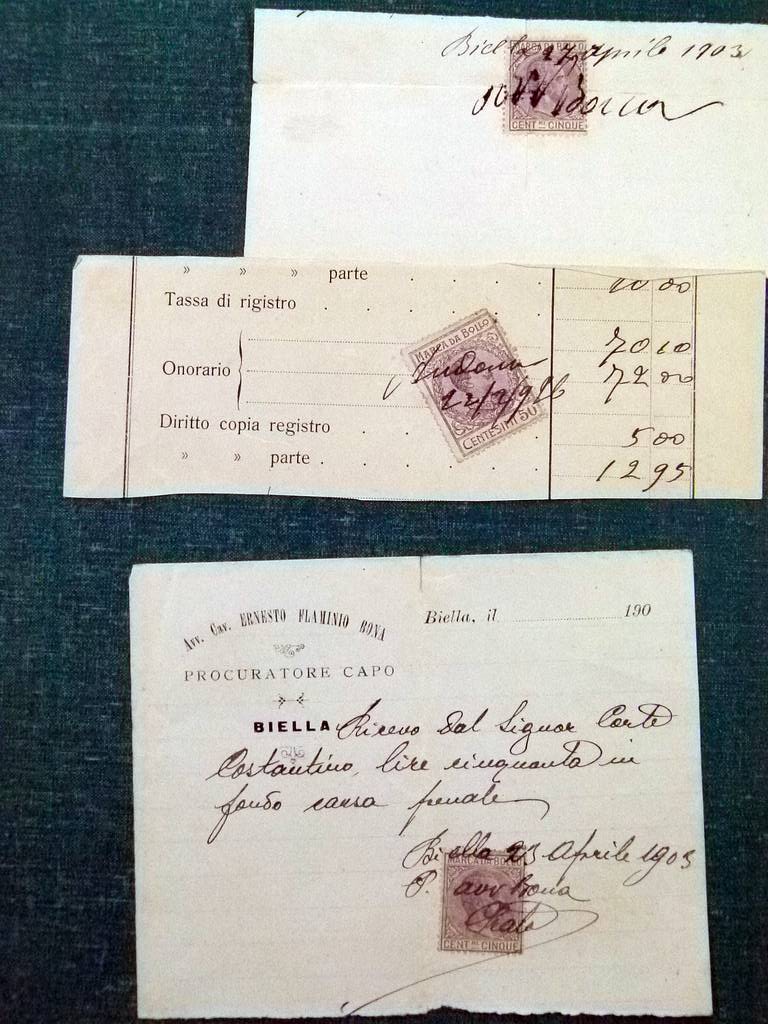 Biella 27 aprile 1903
MARCA DA BOLLO
CENT.MI CINQUE
» » » parte . . . . 10 00
Tassa di rigistro . . . . . .
MARCA DA BOLLO
70 10
Onorario { 72 00
22/2/926
CENTESIMI 50
Diritto copia registro . . . . 5 00
» » parte . . . . . 12 95
Avv. Cav. ERNESTO FLAMINIO BONA
PROCURATORE CAPO
BIELLA
Biella, il 190
Ricevo dal Signor Corte
Costantino, lire cinquanta in
fondo causa penale
Biella 23 Aprile 1903
MARCA DA BOLLO
P. avv Bona
CENT.MI CINQUE